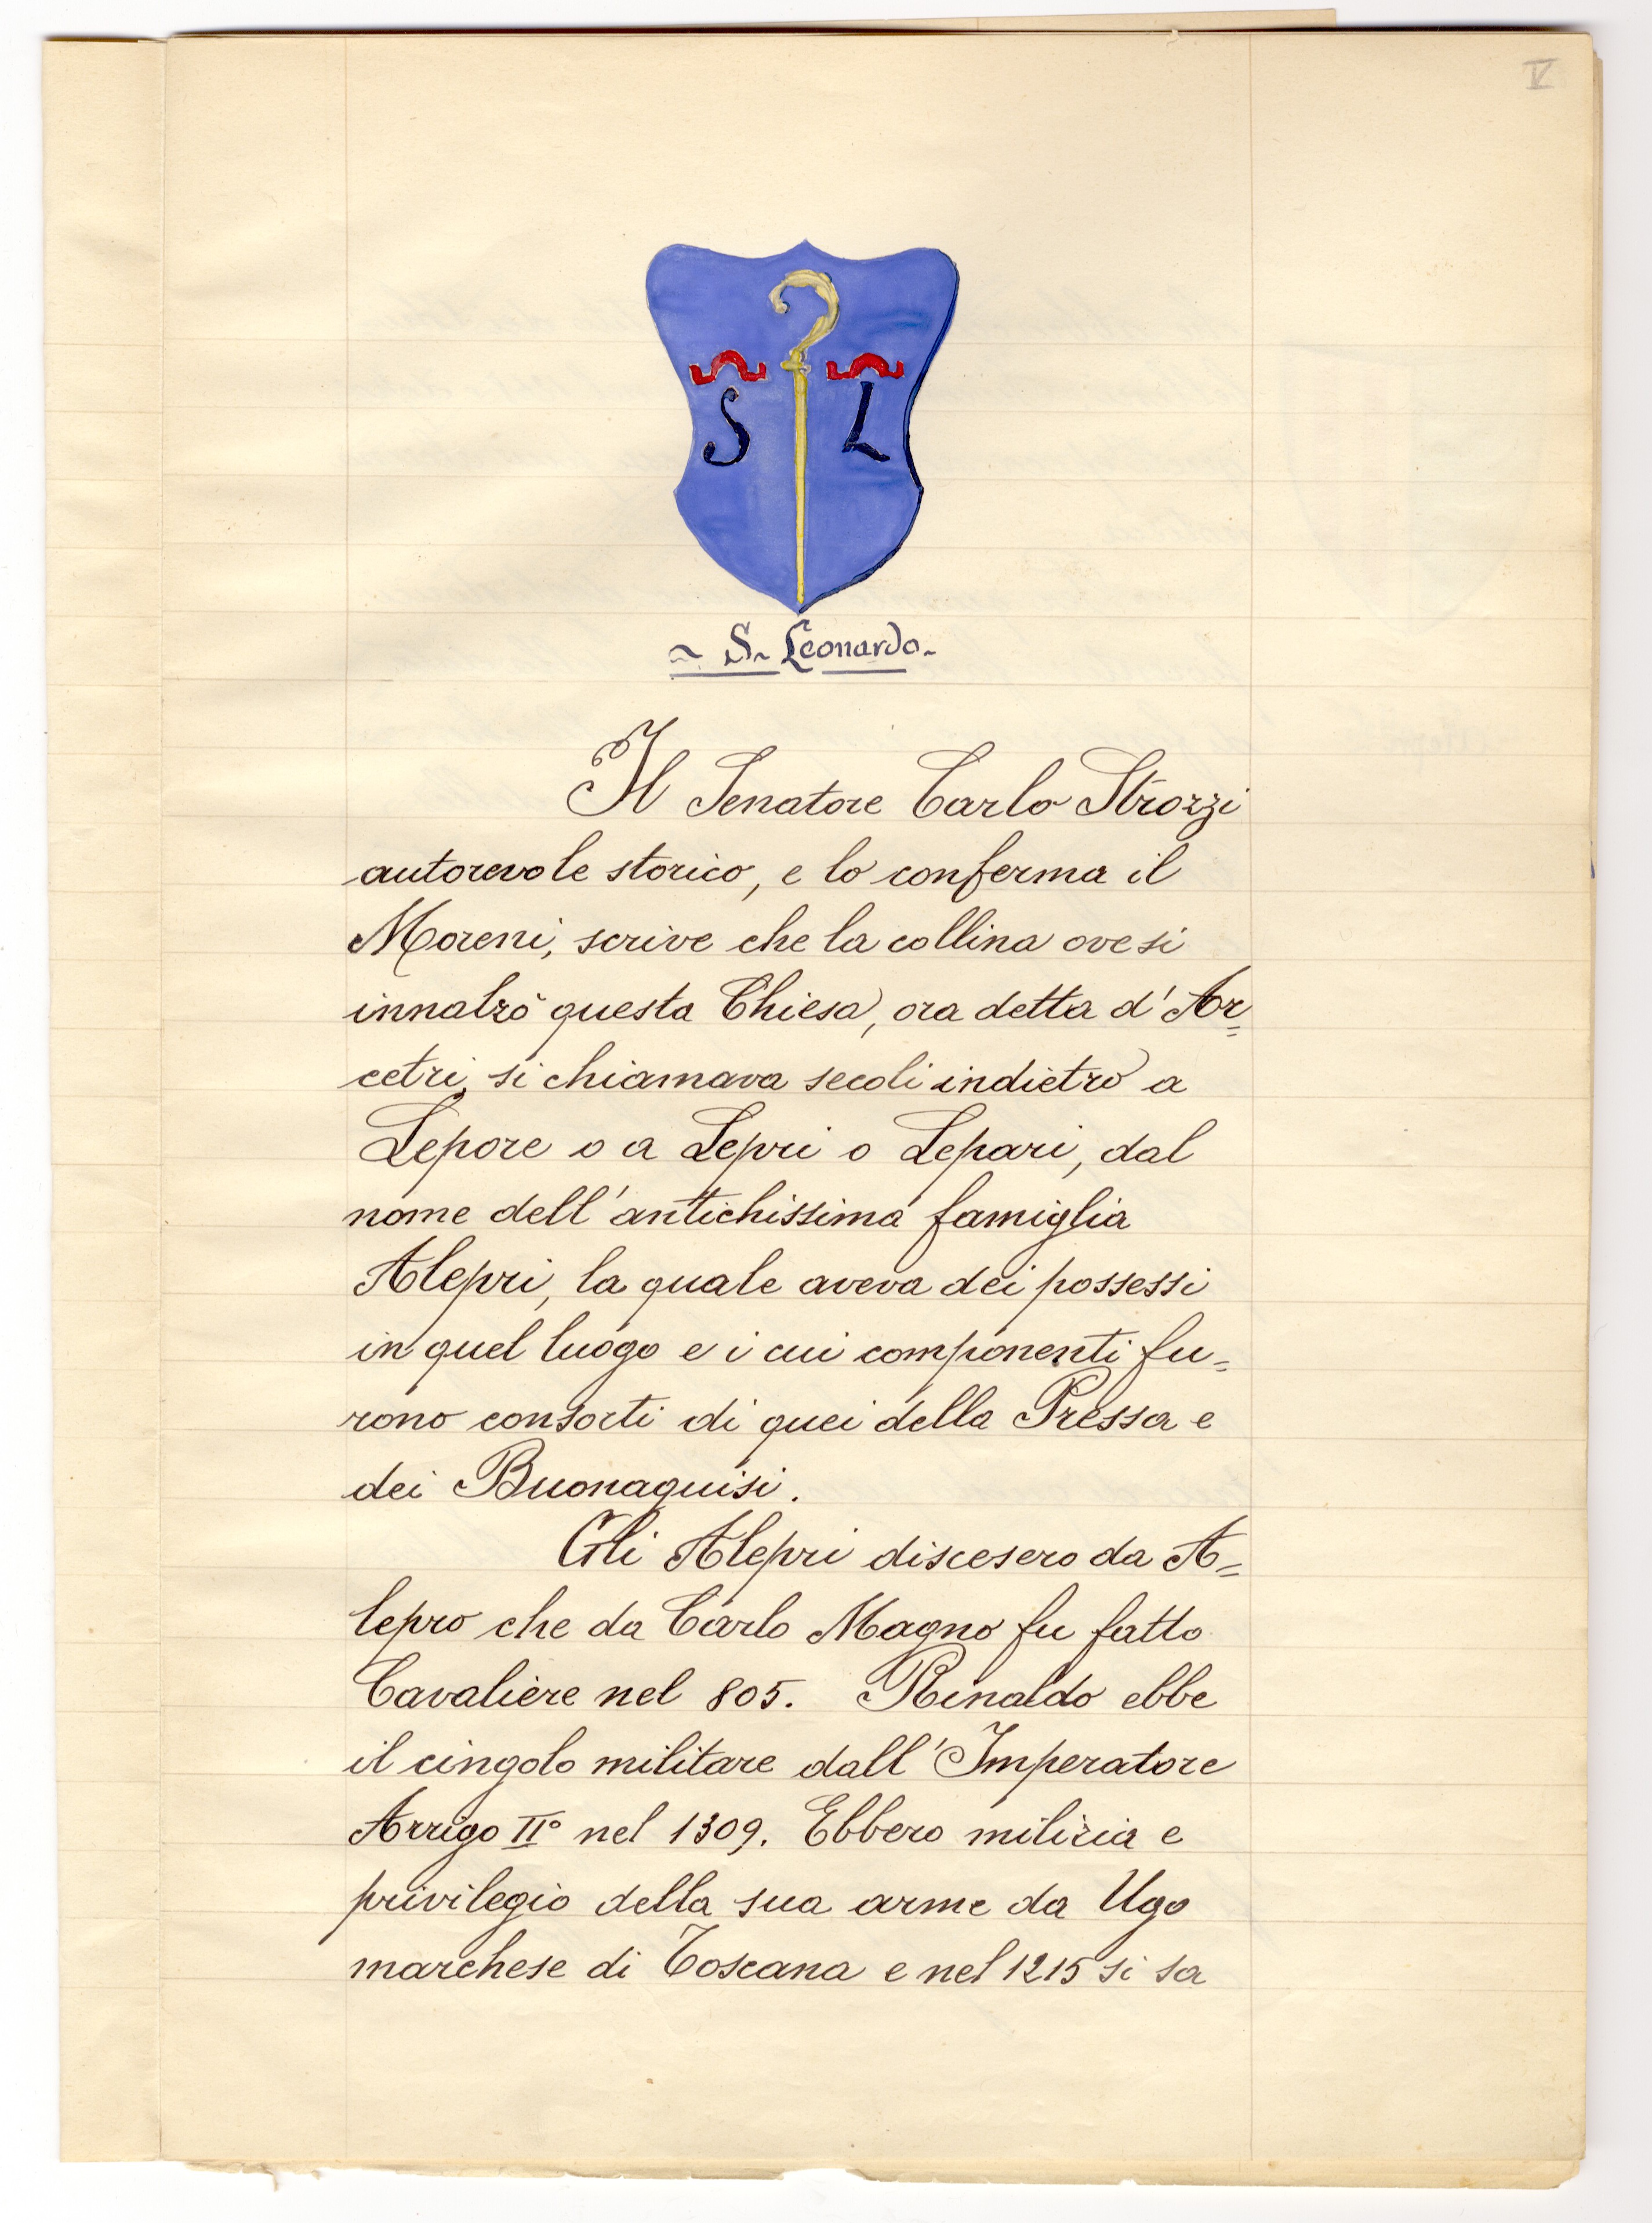 V
S L
~ S. Leonardo.
Il Senatore Carlo Strozzi
autorevole storico, e lo conferma il
Moreni, scrive che la collina ove si
innalzò questa Chiesa, ora detta d'Ar=
cetri, si chiamava secoli indietro a
Lepore o a Lepri o Lepari, dal
nome dell'antichissima famiglia
Alepri, la quale aveva dei possessi
in quel luogo e i cui componenti fu=
rono consorti di quei della Pressa e
dei Buonaguisi.
Gli Alepri discesero da A=
lepro che da Carlo Magno fu fatto
Cavaliere nel 805. Rinaldo ebbe
il cingolo militare dall'Imperatore
Arrigo II° nel 1309. Ebbero milizia e
privilegio della sua arme da Ugo
marchese di Toscana e nel 1215 si sa